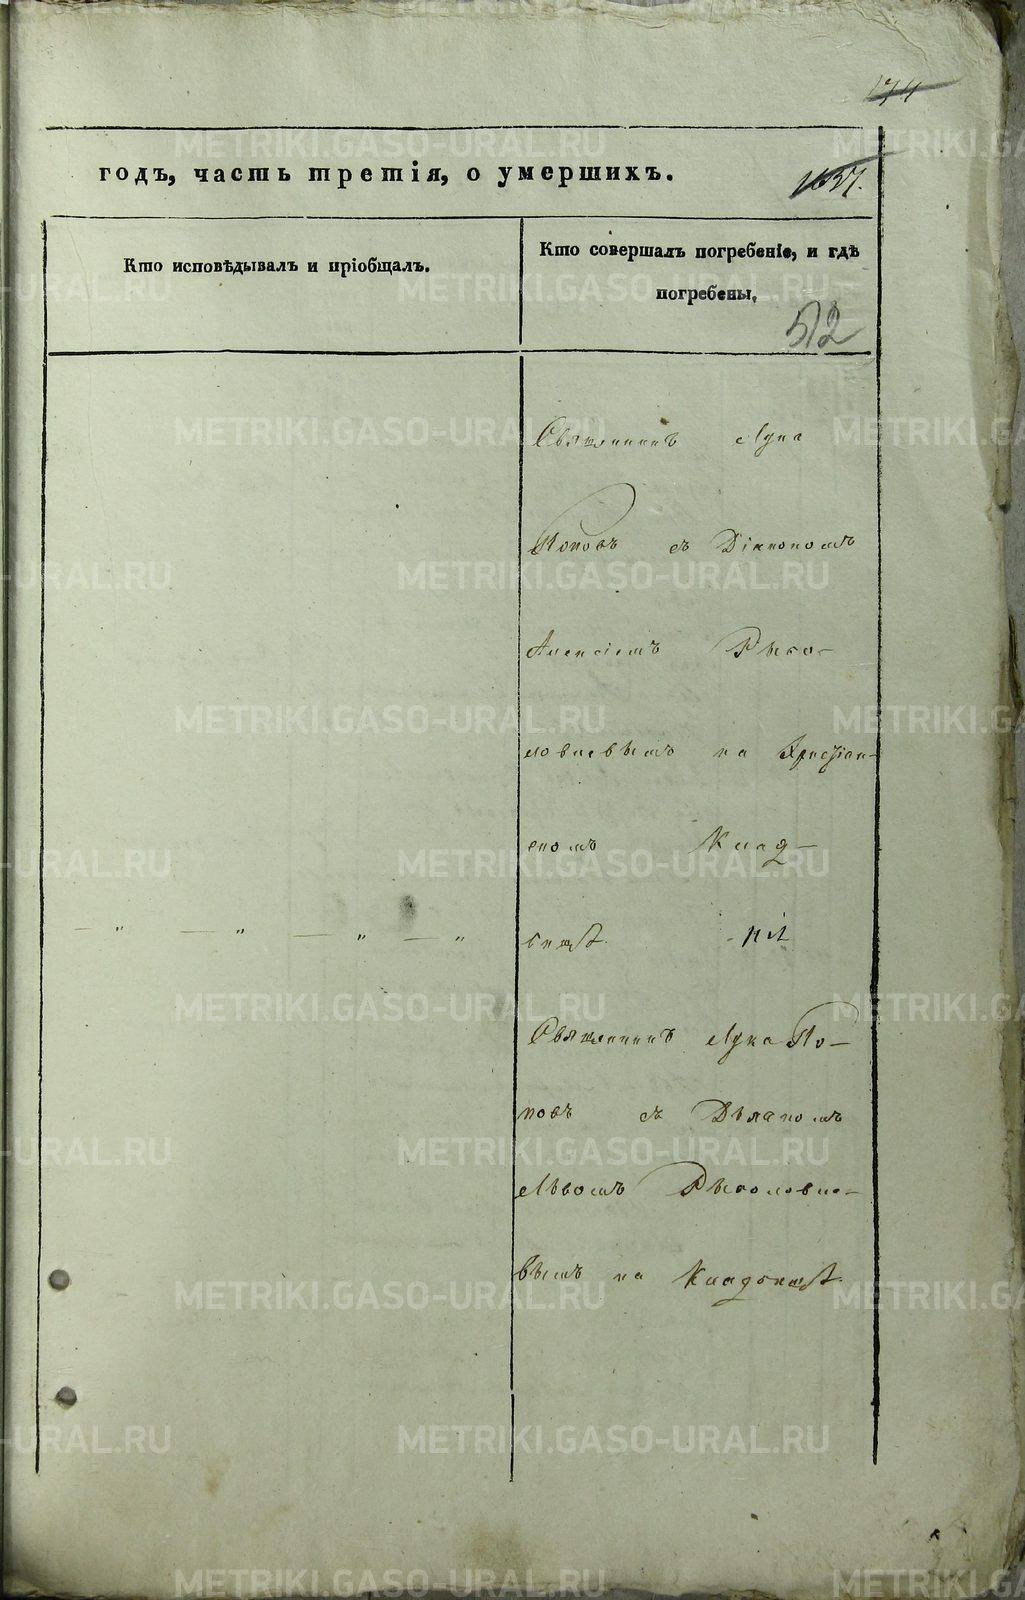 174
годъ, часть третія, о умершихъ.
Кто исповѣдывалъ и пріобщалъ.
Кто совершалъ погребеніе, и гдѣ
погребены.
512
Священникъ Лука
Поповъ съ Діакономъ
Алексіемъ Рысо-
ловлевымъ на Христіан-
скомъ Клад-
бищѣ.
Священникъ Лука По-
повъ съ Дьякономъ
Львомъ
вымъ на Кладбищѣ.
METRIKI.GASO-URAL.RU